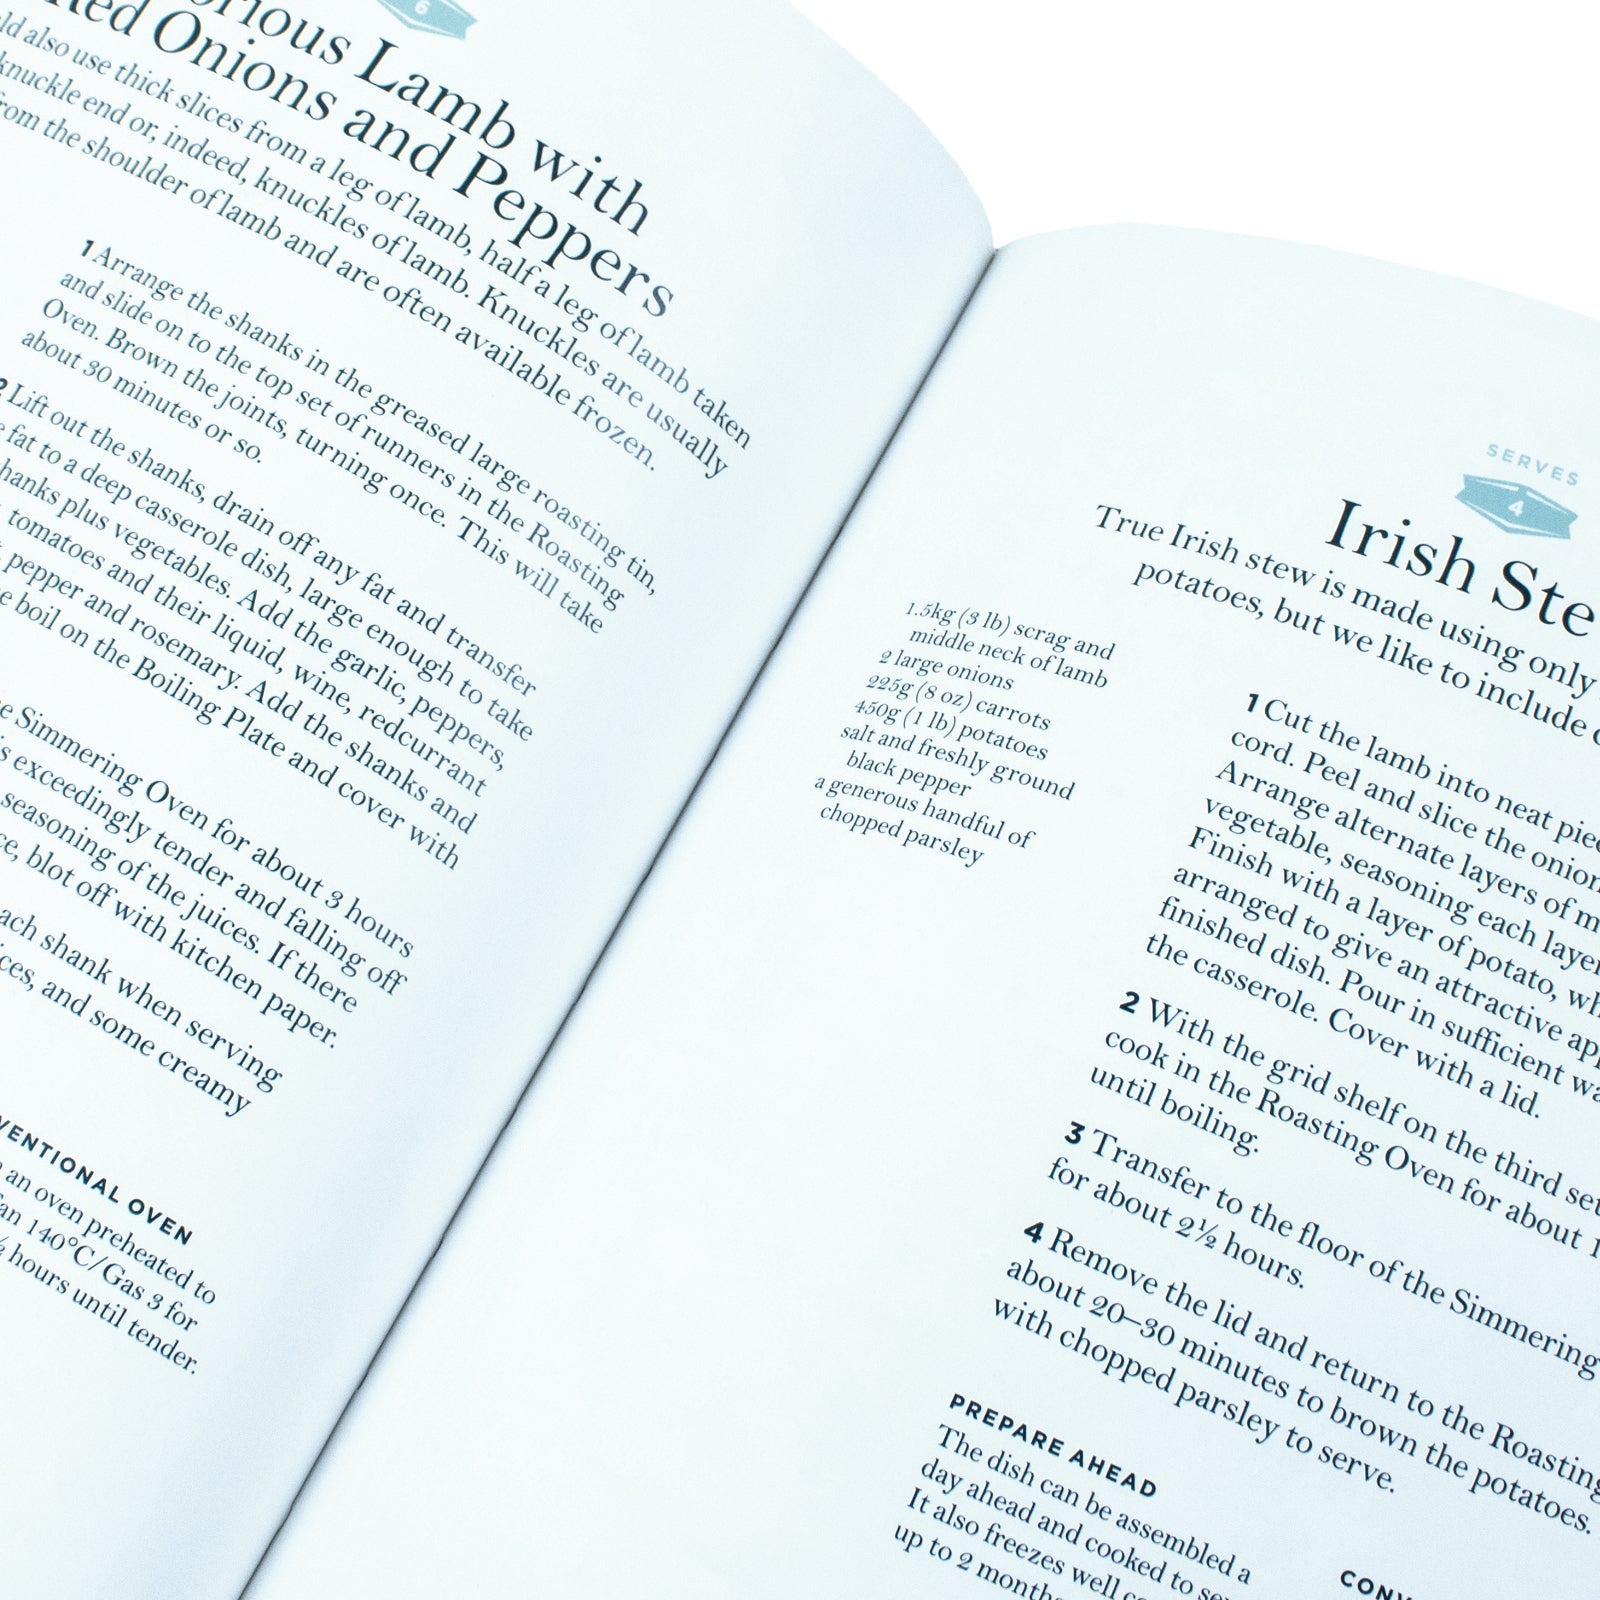 6
Lamb with
Onions and Peppers
also use thick slices from a leg of lamb, half a leg of lamb taken
knuckle end or, indeed, knuckles of lamb. Knuckles are usually
from the shoulder of lamb and are often available frozen.
1 Arrange the shanks in the greased large roasting tin,
and slide on to the top set of runners in the Roasting
Oven. Brown the joints, turning once. This will take
about 30 minutes or so.
Lift out the shanks, drain off any fat and transfer
fat to a deep casserole dish, large enough to take
shanks plus vegetables. Add the garlic, peppers,
tomatoes and their liquid, wine, redcurrant
pepper and rosemary. Add the shanks and
boil on the Boiling Plate and cover with
Simmering Oven for about 3 hours
exceedingly tender and falling off
seasoning of the juices. If there
blot off with kitchen paper.
shank when serving
and some creamy
OVEN
an oven preheated to
140°C/Gas 3 for
hours until tender.
SERVES
4
Irish
True Irish stew is made using only
potatoes, but we like to include
1.5kg (3 lb) scrag and
middle neck of lamb
2 large onions
225g (8 oz) carrots
450g (1 lb) potatoes
salt and freshly ground
black pepper
a generous handful of
chopped parsley
1 Cut the lamb into neat
cord. Peel and slice the
Arrange alternate layers of
vegetable, seasoning each
Finish with a layer of potato,
arranged to give an attractive
finished dish. Pour in sufficient
the casserole. Cover with a lid.
2 With the grid shelf on the third set
cook in the Roasting Oven for about
until boiling.
3 Transfer to the floor of the Simmering
for about 2½ hours.
4 Remove the lid and return to the Roasting
about 20–30 minutes to brown the potatoes.
with chopped parsley to serve.
PREPARE AHEAD
The dish can be assembled a
day ahead and cooked to
It also freezes well
up to 2